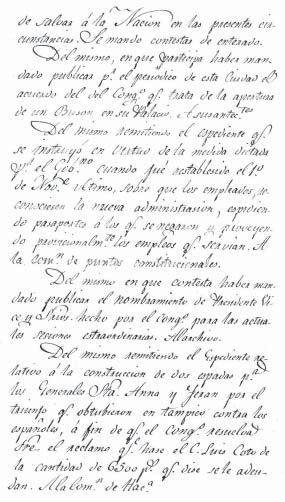 de salvar á la Nacion en las presentes cir
cunstancias. Se mandó contestar de enterado.
Del mismo, en que participa haber man
dado publicar pr. el periodico de esta Ciudad el
acuerdo del del Congo. qe. trata de la apertura
de un Buson en su Palacio. A sus antes.
Del mismo remitiendo el espediente qe.
se instruyó en vertud de la medida dictada
pr. el Gobno. cuando fué establesido el 1º
de Nove. ultimo, sobre que los empleados, re-
conosiesen la nueva administrasion, espidiendo
pasaportes á los qe. se negaron y proveyen
do provicionalmte. los empleos qe. servian. A
la Comn. de puntos constitucionales.
Del mismo en que contesta haber man
dado publicar el nombramiento de Presidente Vi
ce y Srios. hecho por el Congo. para las actua
les seciones estraordinarias. Al archivo.
Del mismo remitiendo el Espediente re
lativo á la construccion de dos espadas pa.
los Generales Sta. Anna y Teran por el
triunfo qe. obtubieron en tampico contra los
españoles, á fin de qe. el Congo. resuelva
sre. el reclamo qe. hase el C. Luis Coto de
la cantidad de 6500 ps. qe. dise se le adeu-
dan. A la Comn. de Haca.